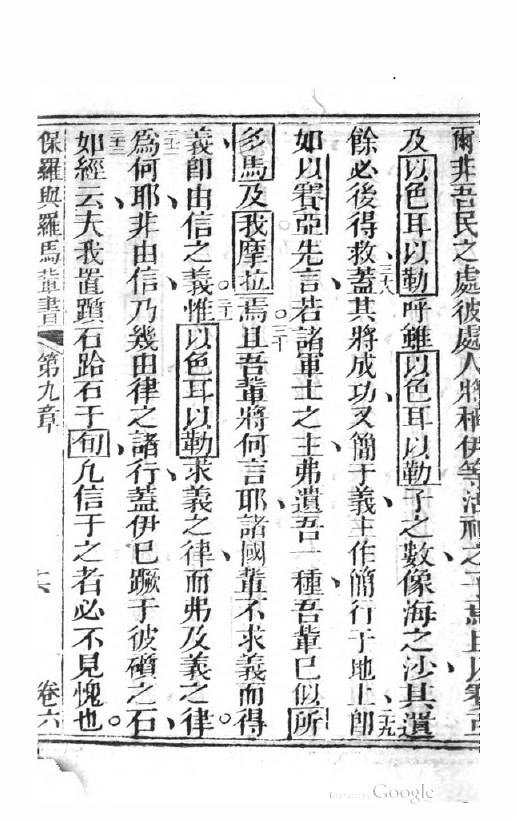 爾非吾民之處彼處人將稱伊等活神之子焉且以賽亞
及以色耳以勒呼雖以色耳以勒子之數像海之沙其遺
餘必後得救蓋其將成功又簡于義主作簡行于地上即
如以賽亞先言若諸軍士之主弗遺吾一種吾輩已似所
多馬及我摩拉焉且吾輩將何言耶諸國輩不求義而得
義即由信之義惟以色耳以勒求義之律而弗及義之律
爲何耶非由信乃幾由律之諸行蓋伊已蹶于彼礩之石
如經云夫我置躓石跲石于旬凡信于之者必不見愧也
保羅與羅馬輩書 第九章 卷六
二十八
二十九
三十
三十一
三十二
三十三
Digitized by Google